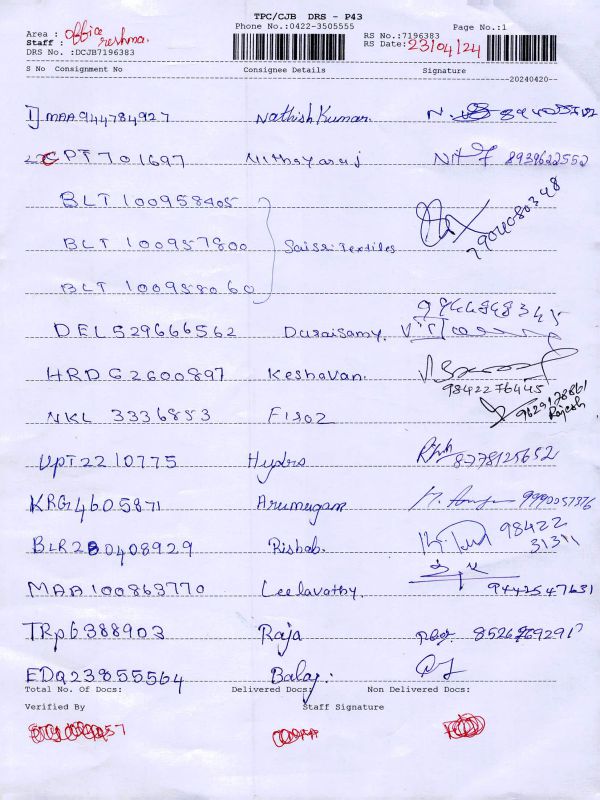 TPC/CJB DRS - P43
Phone No.:0422-3505555
Page No.:1
Area : office
Staff : reshma.
DRS No. :DCJB7196383
RS No.:7196383
RS Date: 23/04/24
S No Consignment No Consignee Details Signature
20240420
1] MAA944784927 Nathish Kumar.
2. CPT701697 Nithayaraj Nit 8939622552
BLT 100958405 7904080348
BLT 100957800 Saissi Textiles
BLT 100958060
9844848345
DEL529666562 Duraisamy.
HRDG2600897 Keshavan. 9842276445
NKL 3336853 Firoz 9629128861 Rajesh
UPT2210775 Hydro 8778125652
KRG4605871 Arumugam 9990057376
BLR20408929 Rishab. 98422 31311
MAA100863770 Leelavathy. 9442547631
TRP6388903 Raja
EDQ23855564 Balaj.
Total No. Of Docs: Delivered Docs: Non Delivered Docs:
Verified By Staff Signature